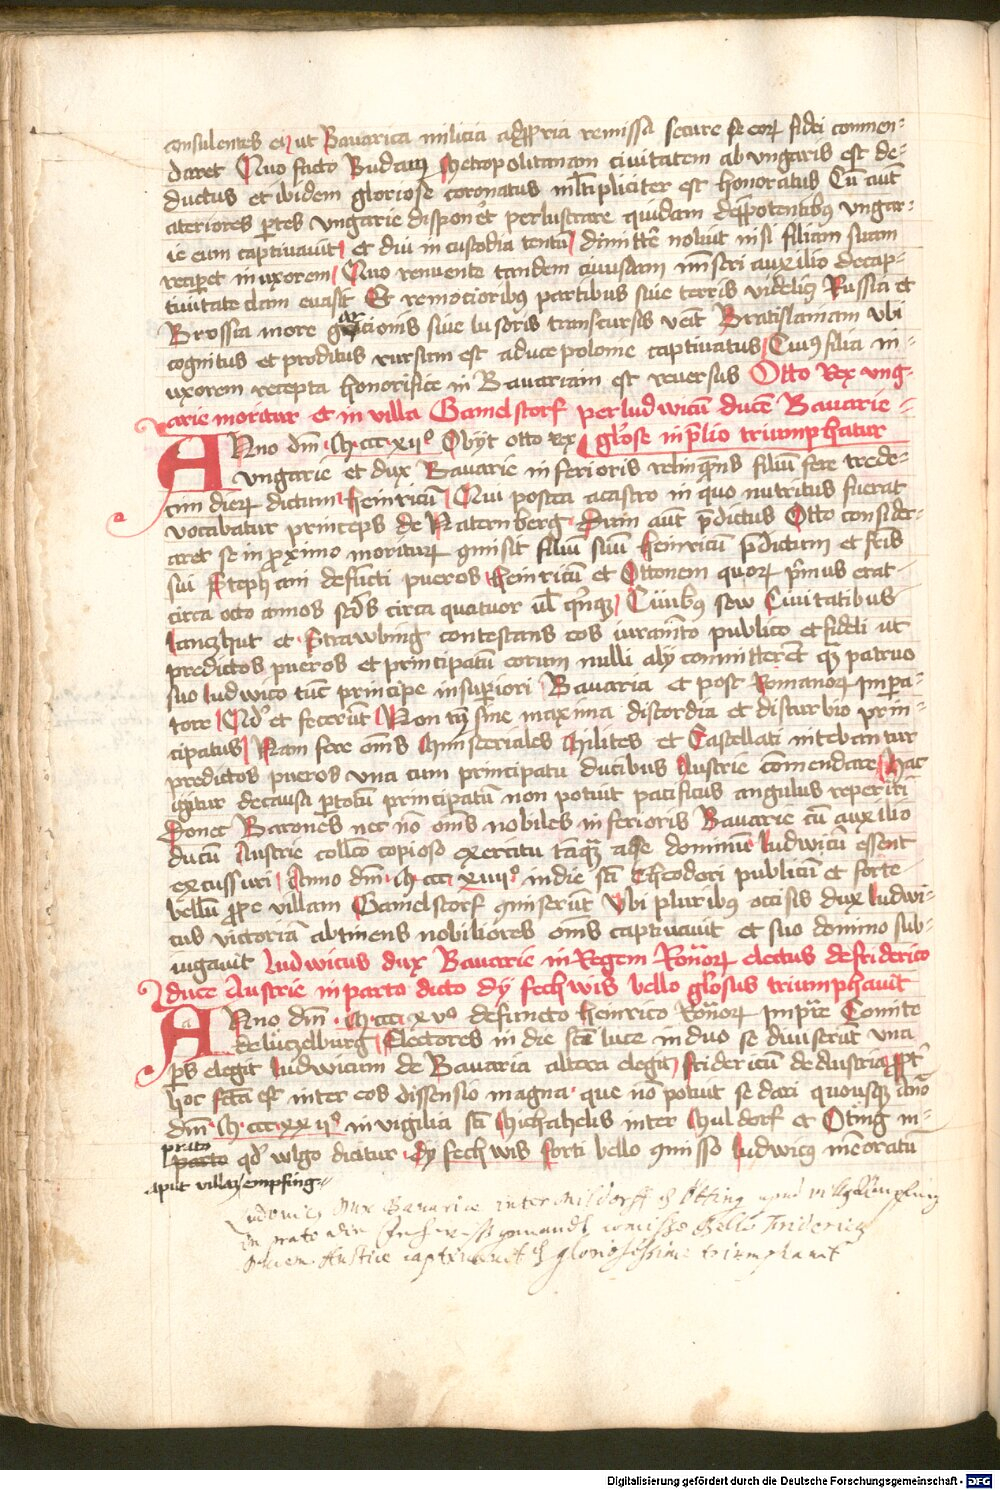 insulentes ei ut Bavarica milicia adpropria remissa secure se eorum fidei commen-
daret Quo facto Budam Metropolitanam civitatem ab ungaris est de-
ductus et ibidem gloriose coronatus multipliciter est honoratus Cum autem
ulteriores partes ungarie disponeret perlustrare quidam de potentibus ungar-
ie eum captivavit et diu in custodia tentum dimittere noluit nisi filiam suam
reciperet in uxorem Quo renuente tandem cuiusdam auxilio decap-
tivitate clam evasit Et remocioribus partibus sive terris videlicet Russia et
Brossia more sive lusoris transcursis venit Bratislaviam ubi
cognitus et proditus rursum est aduce polonie captivatus Cuius filia in-
uxorem recepta honorifice in Bavariam est reversus Otto Rex ung-
arie moritur et in villa Gamelstorf per ludwicum ducem Bavarie
Anno dni M ccc xii° Obyt otto rex gloriose in prelio triumphatur
ungarie et dux Bavarie inferioris relinquens filium fere trede-
cim dierum dictum heinricum Qui postea acastro in quo nutritus fuerat
vocabatur princeps de Naternberg Dum autem predictus Otto consider-
aret se in proximo moriturum commisit filium suum heinricum predictum et fratris
sui Stephani defuncti pueros heinricum et Ottonem quorum primus erat
circa octo annos secundus circa quatuor vel quinque Civibus sew Civitatibus
lanczhut et Strawbing contestans eos iuramento publico et fideli ut
predictos pueros et principatum eorum nulli aly committerent quam patruo
suo ludwico tunc principe insuperiori Bavaria et post Romanorum impera-
tore Quod et fecerunt Non tamen sine maxima discordia et disturbio prin-
cipatus Nam fere omnes Ministeriales Milites et Castellati nitebantur
predictos pueros una cum principatu ducibus Austrie commendare Hac
igitur decausa per totum principatum non potuit pacificus angulus reperiri
Donec Barones nec non omnes nobiles inferioris Bavarie cum auxilio
ducum Austrie collecto copioso exercitu tamquam a se dominum ludwicum essent
excussuri Anno dni M ccc xiiii° in die sancti Theodori publicum et forte
bellum prope villam Gamelstorf commiserunt Ubi pluribus occisis dux ludwi-
cus victoriam abtinens nobiliores omnes captivavit et suo domino sub-
iugavit Ludwicus dux Bavarie in Regem Romanorum electus de friderico
duce Austrie in parto dicto dy fechwis bello gloriosus triumphavit
Anno dni M ccc xv° defuncto heinrico Romanorum imperatore Comite
de lüczelburg Electores in die sancti luce in duo se diviserunt una
pars elegit ludwicum de Bavaria altera elegit fridericum de Austria propter
hoc facta est inter eos dissensio magna que non potuit sedari quousque anno
dni M ccc xx ii° in vigilia sancti Michahelis inter Muldorf et Oting in
prato
parto quod wlgo dicitur dy fechwis forti bello commisso ludwicus memoratus
aput villam empfing
Ludovicus Dux Bavarie inter Mildorff et Ötting apud villam Empfing
in prato bello Fridericum
Ducem Austrie captivavit et gloriosissime triumphavit
Digitalisierung gefördert durch die Deutsche Forschungsgemeinschaft - DFG